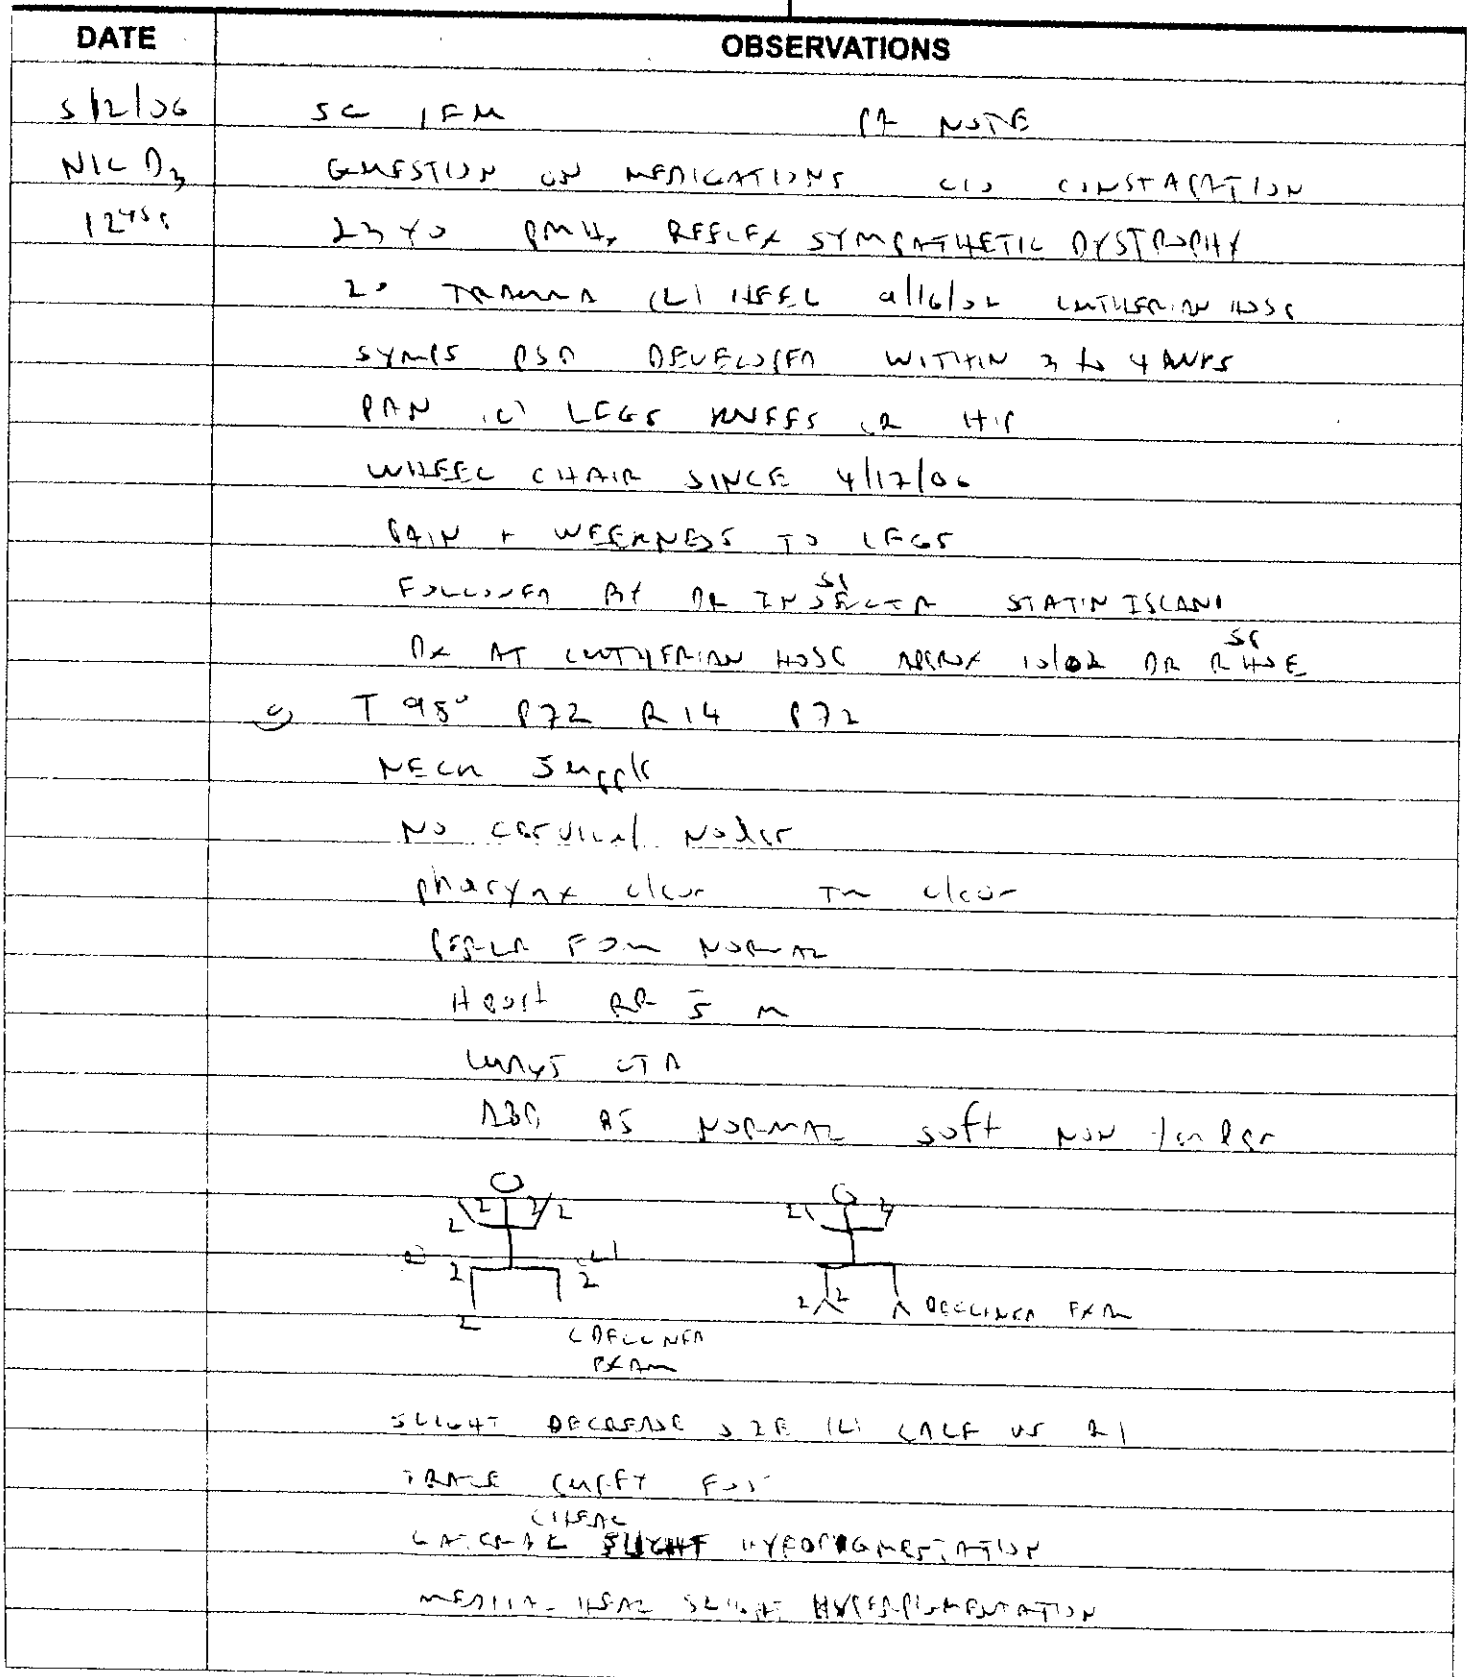 DATE OBSERVATIONS
5/12/06 SC IFM PA NOTE
QUESTION ON MEDICATIONS C/O CONSTAPATION
1245P 23 YO PMHx REFLEX SYMPATHETIC DYSTROPHY
2° TRAUMA (L) HEEL 9/16/02 LUTHERIAN HOSP
SYMPS RSD DEVELOPED WITHIN 3 to 4 WKS
PAIN (L) LEGS KNEES HIP
WHEEL CHAIR SINCE 4/17/06
PAIN + WEEKNESS TO LEGS
FOLLOWED BY DR STATIN ISLAND
DX AT LUTHERIAN HOSP APPROX 10/02 DR
O) T 98° P72 R14 P72
NECK Supple
NO cervical Nodes
pharynx clear TM clear
PERLA EOM NORMAL
Heart RR s̄ m
LUNGS CTA
ABD BS NORMAL soft NON tender
2 2 2 2 2 2
(L)
2 2 2 2 DECLINED EXAM
2
DECLINED
EXAM
SLIGHT DECREASE SIZE (L) CALF VS R)
TRACE PUFFY
HEAL
LATERAL SLIGHT HYPOPIGMENTATION
MEDIAL HEAL SLIGHT HYPERPIGMENTATION